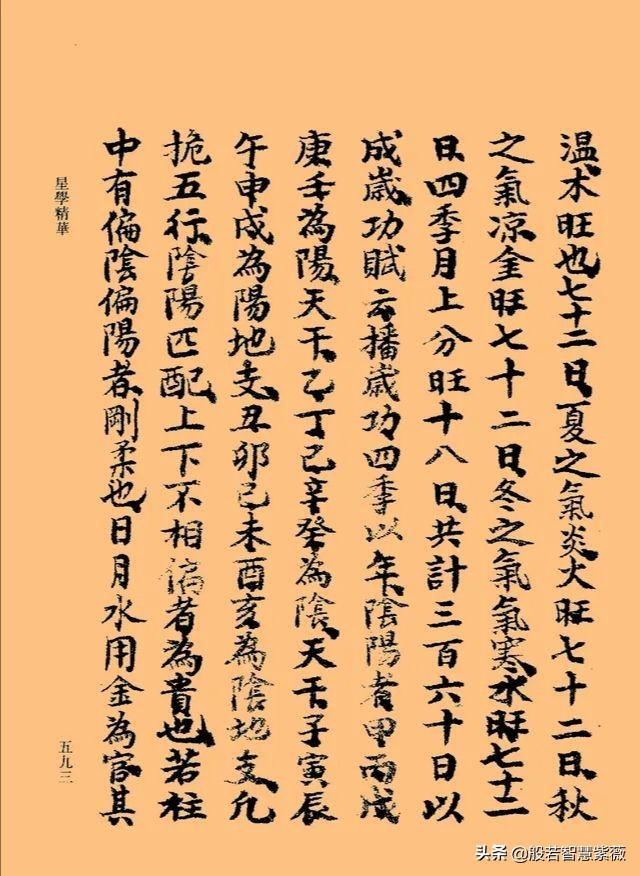 温木旺也七十二日夏之氣炎火旺七十二日秋
之氣凉金旺七十二日冬之氣氣寒水旺七十二
日四季月上分旺十八日共計三百六十日以
成歲功賦云播歲功四季以年陰陽者甲丙戊
庚壬為陽天干乙丁己辛癸為陰天干子寅辰
午申戌為陽地支丑卯巳未酉亥為陰地支凡
五行陰陽匹配上下不相偏者為貴也若柱
中有偏陰偏陽者剛柔也日月水用金為官其
星學精華
五九三
头条 @般若智慧紫薇